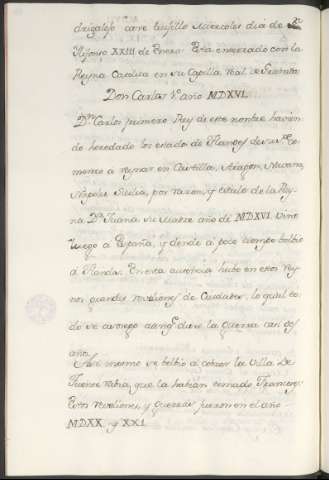 drigalejo cave trujillo Miercoles dia de Sn
Ylefonso XXIII de Enero. Esta enterrado con la
Reyna Catolica en su Capilla Real de Granada
Don Carlos 1º año MDXVI.
Dn Carlos primero Rey de este nombre havien
do heredado los estados de Flandes de su Pe Co
menzo á reynar en Castilla, Aragon, Navarra,
Napoles Sicilia, por razon, y titulo de la Rey
na Da Juana su Madre año de MDXVI. Vino
luego a España, y dende á poco tiempo bolbio
á Flandes. En esta ausencia hubo en estos Rey
nos grandes reveliones de Ciudades, lo qual to
do se apaciguo aunq e duro la guerra casi dos
años.
Asi mesmo se bolbio á cobrar la Villa de
Fuente rabia que la habian tomado Franceses
Estas reveliones, y guerras fueron en el año
MDXX. y XXI.